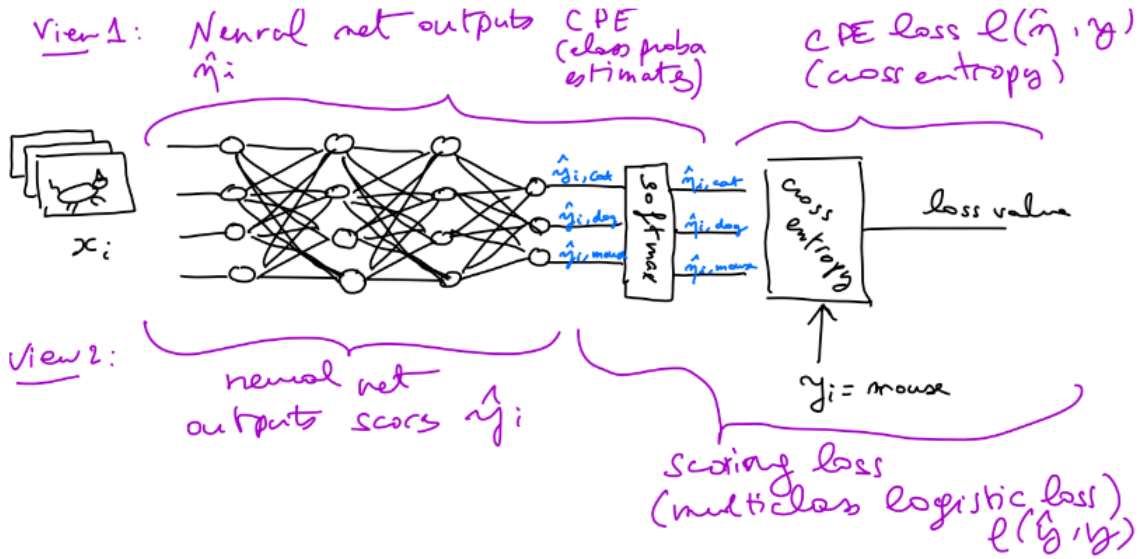 View 1: Neural net outputs CPE
η̂i (class proba estimates)
CPE loss ℓ(η̂, y)
(cross entropy)
xi
ŷi,cat
ŷi,dog
ŷi,mouse
softmax
η̂i,cat
η̂i,dog
η̂i,mouse
cross
entropy
loss value
yi = mouse
View 2:
neural net
outputs scors ŷi
scoring loss
(multiclass logistic loss)
ℓ(ŷ, y)